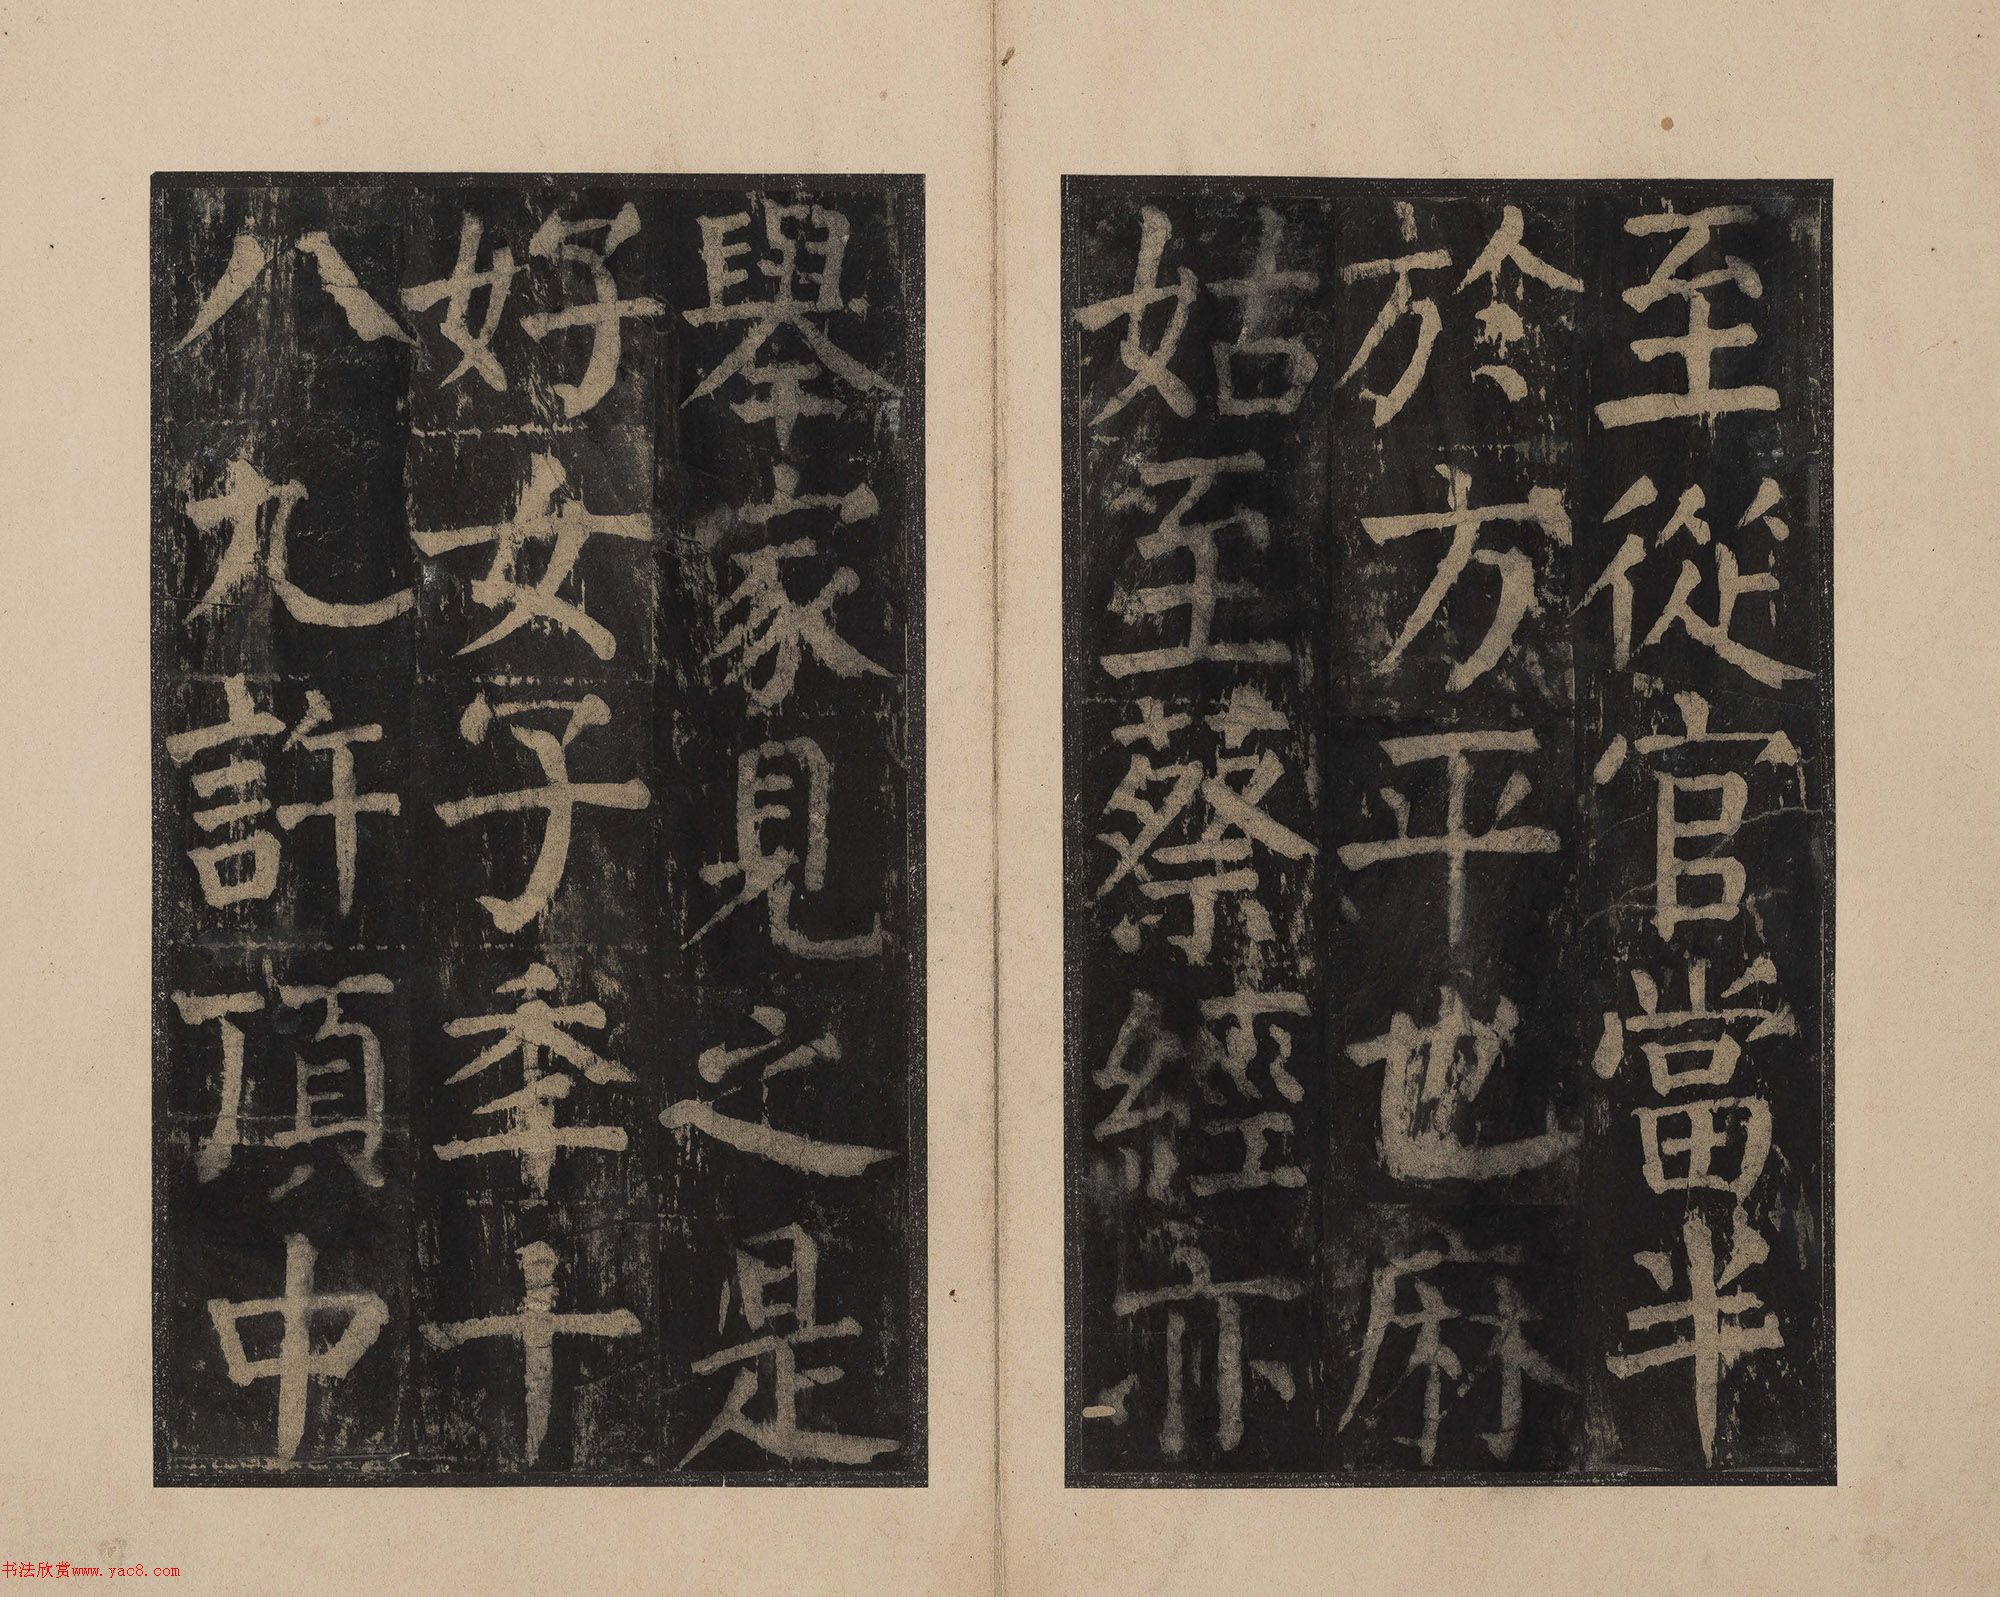 至從官當半
於方平也麻
姑至蔡經亦
舉家見之是
好女子年十
八九許頂中
书法欣赏www.yac8.com